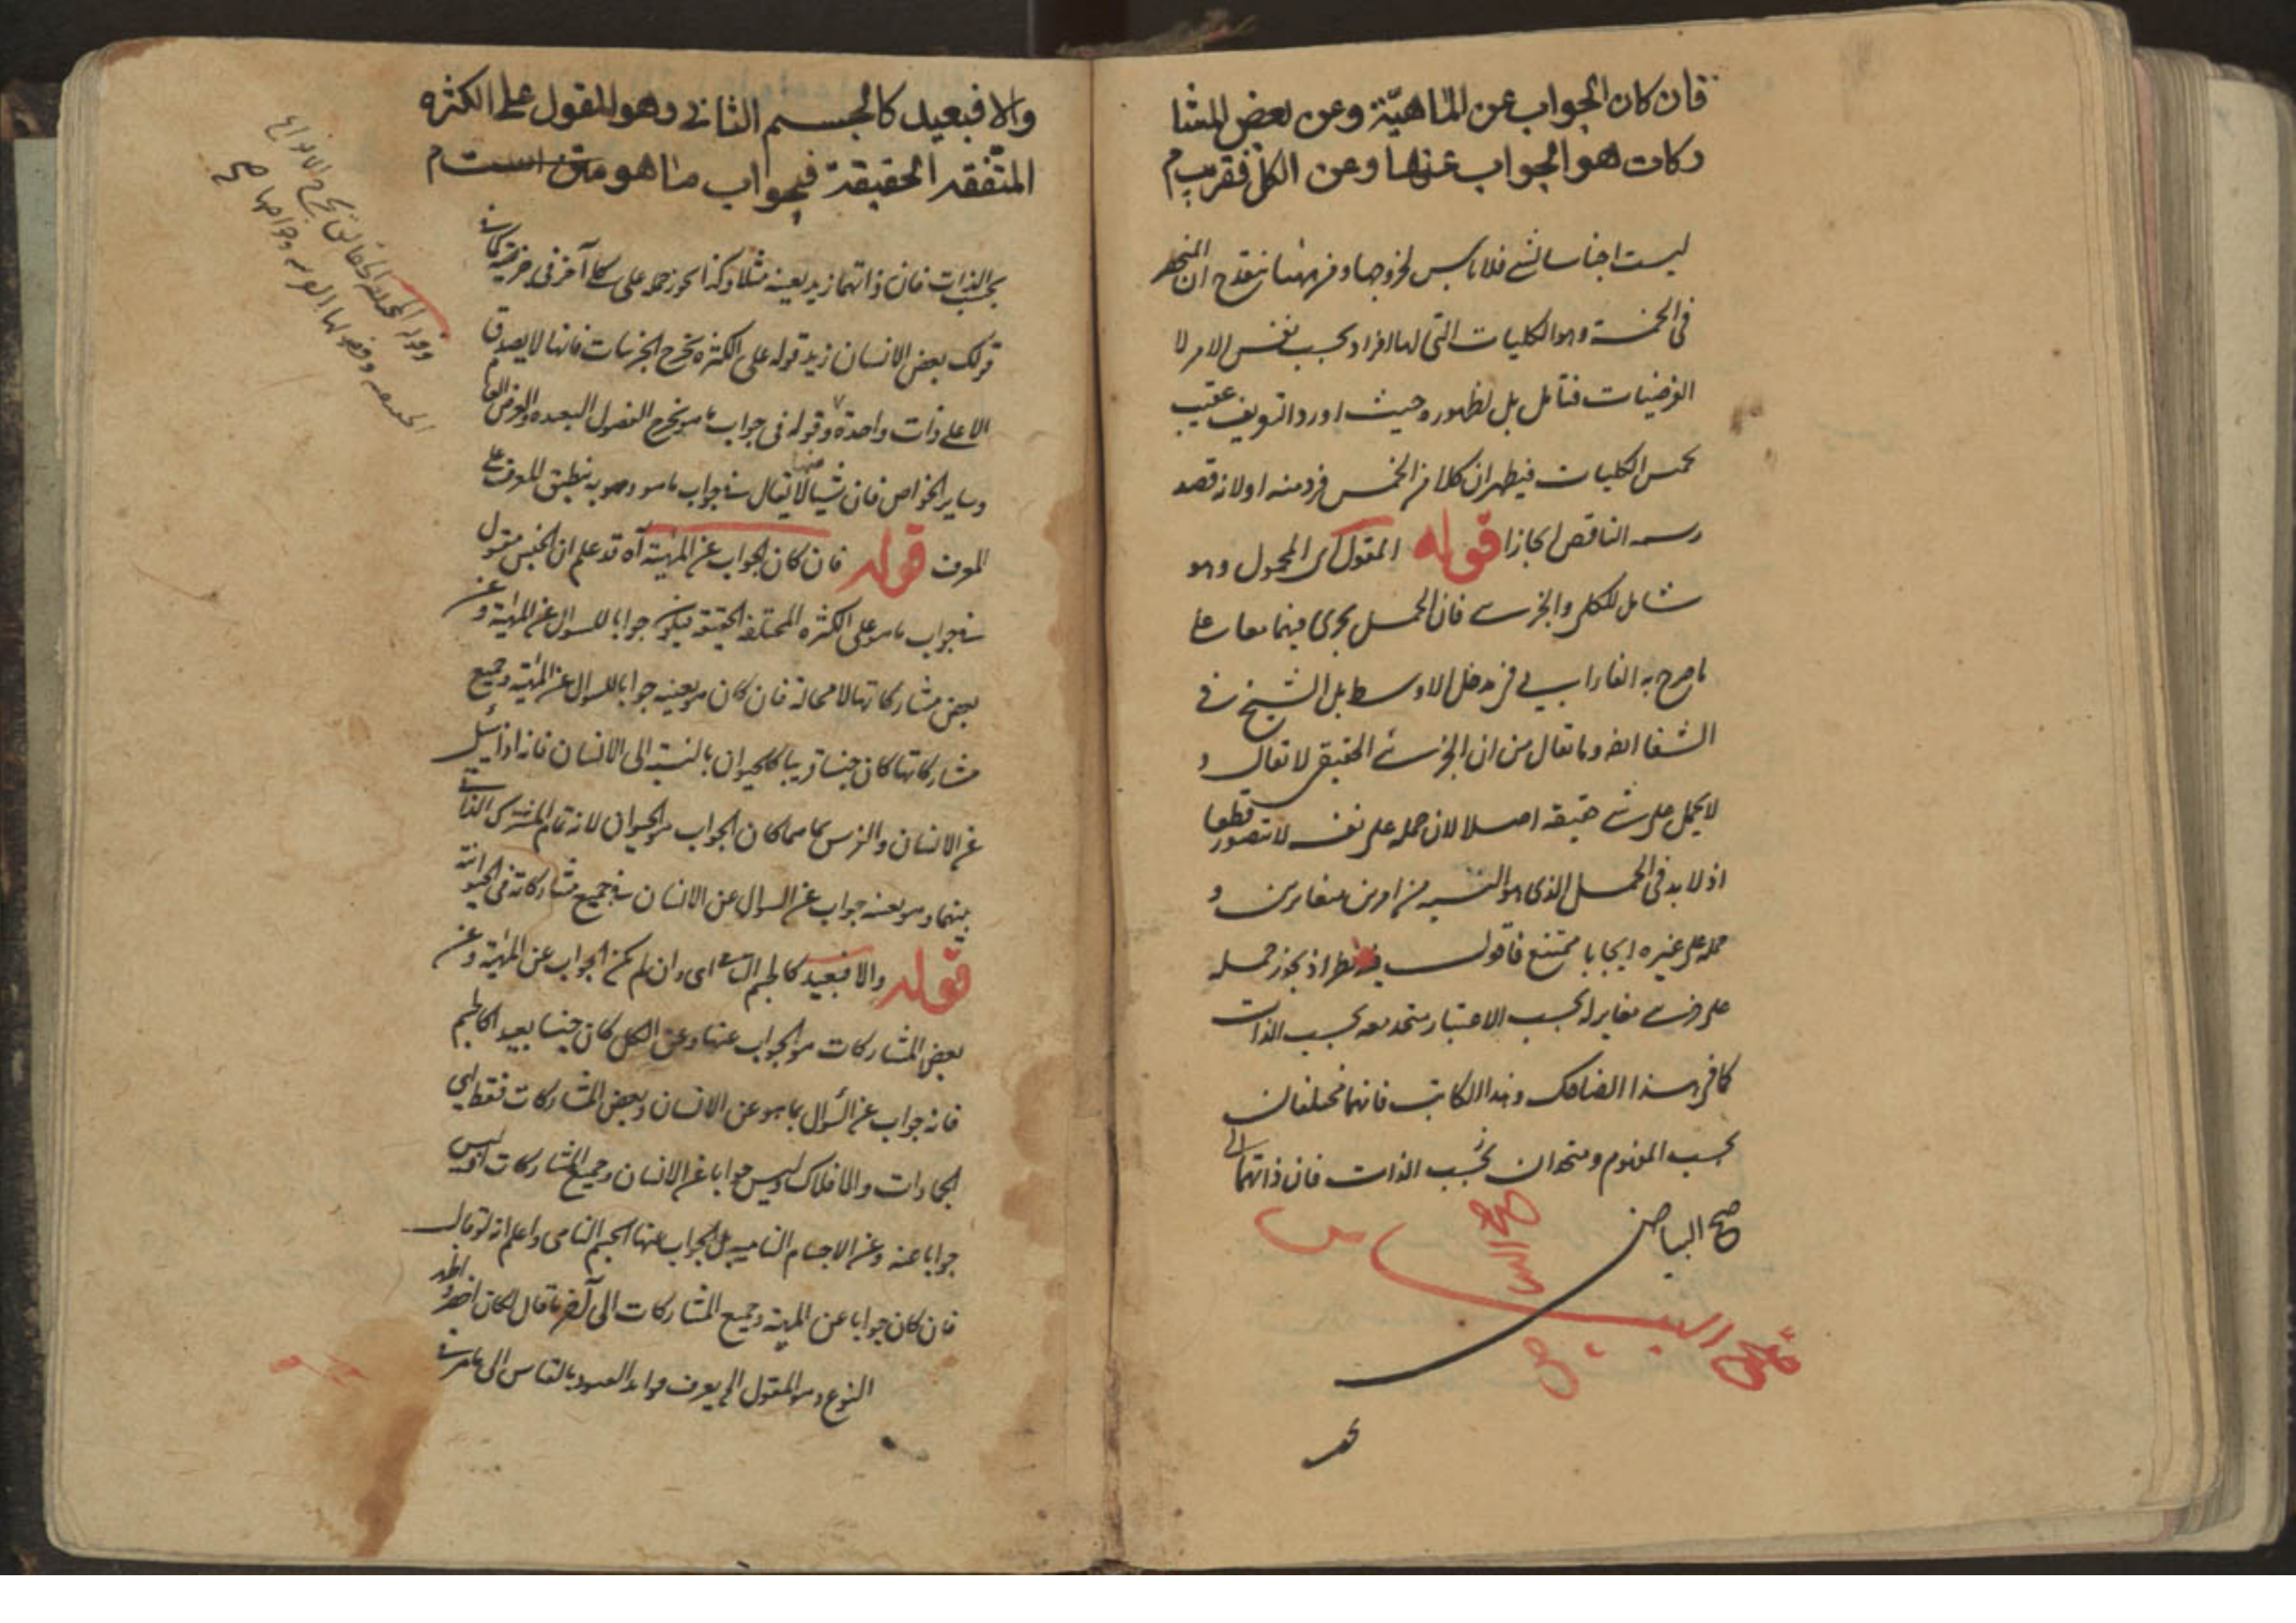 فان كان الجواب عن الماهيّة وعن بعض المشا
ركات هو الجواب عنها وعن الكل فقريب م
ليست اجناسا لشئ فلا باس لخروجها ومن ههنا ينقدح ان المنحصر
فى الخمسة وهو الكليات التى لها افراد بحسب نفس الامر لا
الفرضيات فتامل بل لظهوره حيث اورد التعريف عقيب
خمس الكليات فيظهر ان كلا من الخمس فرد منه اولا نه قصد
رسمه الناقص ايجازا قوله المقول اى المحمول وهو
شامل للكلى والجزئى فان الحمل يجرى فيهما معا على
ما صرح به الفارابى فى مدخل الاوسط بل الشيخ فى
الشفا ايضا وما يقال من ان الجزئى الحقيقى لا يقال و
لا يحمل على شئ حقيقة اصلا لان حمله على نفسه لا يتصور قطعا
اذ لا بد فى الحمل الذى هو النسبة من امرين متغايرين و
حمله على غيره ايجابا ممتنع فاقول فيه نظر اذ يجوز حمله
على جزئى مغاير له بحسب الاعتبار متحد معه بحسب الذات
كما فى هذا الضاحك وهذا الكاتب فانهما مختلفان
بحسب المفهوم ومتحدان بحسب الذات فان ذاتهما الى
صح البياض
صح البياض
بحسـ
والا فبعيد كالجسم الثانى وهو المقول على الكثره
المتّفقه الحقيقة فى جواب ما هو متن است م
بحسب الذات فان ذاتهما زيد بعينه مثلا وكذا يجوز حمله على كلى آخر فى جزئية كما فى
قولك بعض الانسان زيد قوله على الكثرة يخرج الجزئيات فانها لا يصدق
الا على ذات واحدة وقوله فى جواب ما هو يخرج الفصول البعيده والعرض العام
وساير الخواص فان شيئا منها لا يقال فى جواب ما هو وبه ينطبق المعرف على
المعرف قوله فان كان الجواب عن المهيّة آه قد علم ان الجنس مقول
فى جواب ما هو على الكثره المختلفة الحقيقة فيكون جوابا للسوال عن المهيّة وعن
بعض مشاركاتها لا محالة فان كان هو بعينه جوابا للسوال عن المهيّة وجميع
مشاركاتها كان جنسا قريبا كالحيوان بالنسبة الى الانسان فانه اذا سئل
عن الانسان والفرس بما هما كان الجواب هو الحيوان لانه تمام المشترك الذاتى
بينهما وهو بعينه جواب عن السوال عن الانسان فى جميع مشاركاته فى الحيوانية
قوله والا فبعيد كالجسم الثانى اى وان لم يكن الجواب عن المهيّة وعن
بعض المشاركات هو الجواب عنها وعن الكل كان جنسا بعيدا كالجسم
فانه جواب عن السؤال بما هو عن الانسان وبعض المشاركات فقط اى
الجمادات والافلاك وليس جوابا عن الانسان وجميع المشاركات اذ ليس
جوابا عنه وعن الاجسام الناميه بل الجواب عنها الجسم النامى واعلم انه لو قال
فان كان جوابا عن المهيّة وجميع المشاركات الى آخر ما قال لكان اخصر واظهر
النوع وهو المقول الخ يعرف فوايد القيود بالقياس الى ما مر فى